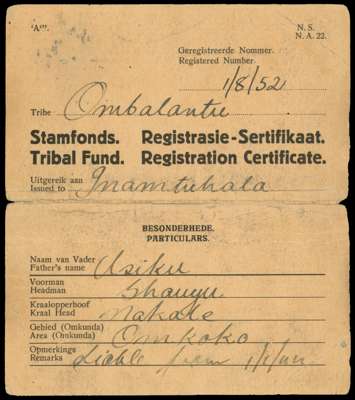 'A'".
N. S.
N. A. 22.
Geregistreerde Nommer.
Registered Number.
1/8/52
Tribe Ombalantu
Stamfonds. Registrasie-Sertifikaat.
Tribal Fund. Registration Certificate.
Uitgereik aan
Issued to Inamtuhala
BESONDERHEDE.
PARTICULARS.
Naam van Vader
Father's name Usiku
Voorman
Headman Shauyu
Kraalopperhoof
Kraal Head Nakale
Gebied (Omkunda)
Area (Omkunda) Omkoko
Opmerkings
Remarks Liable from